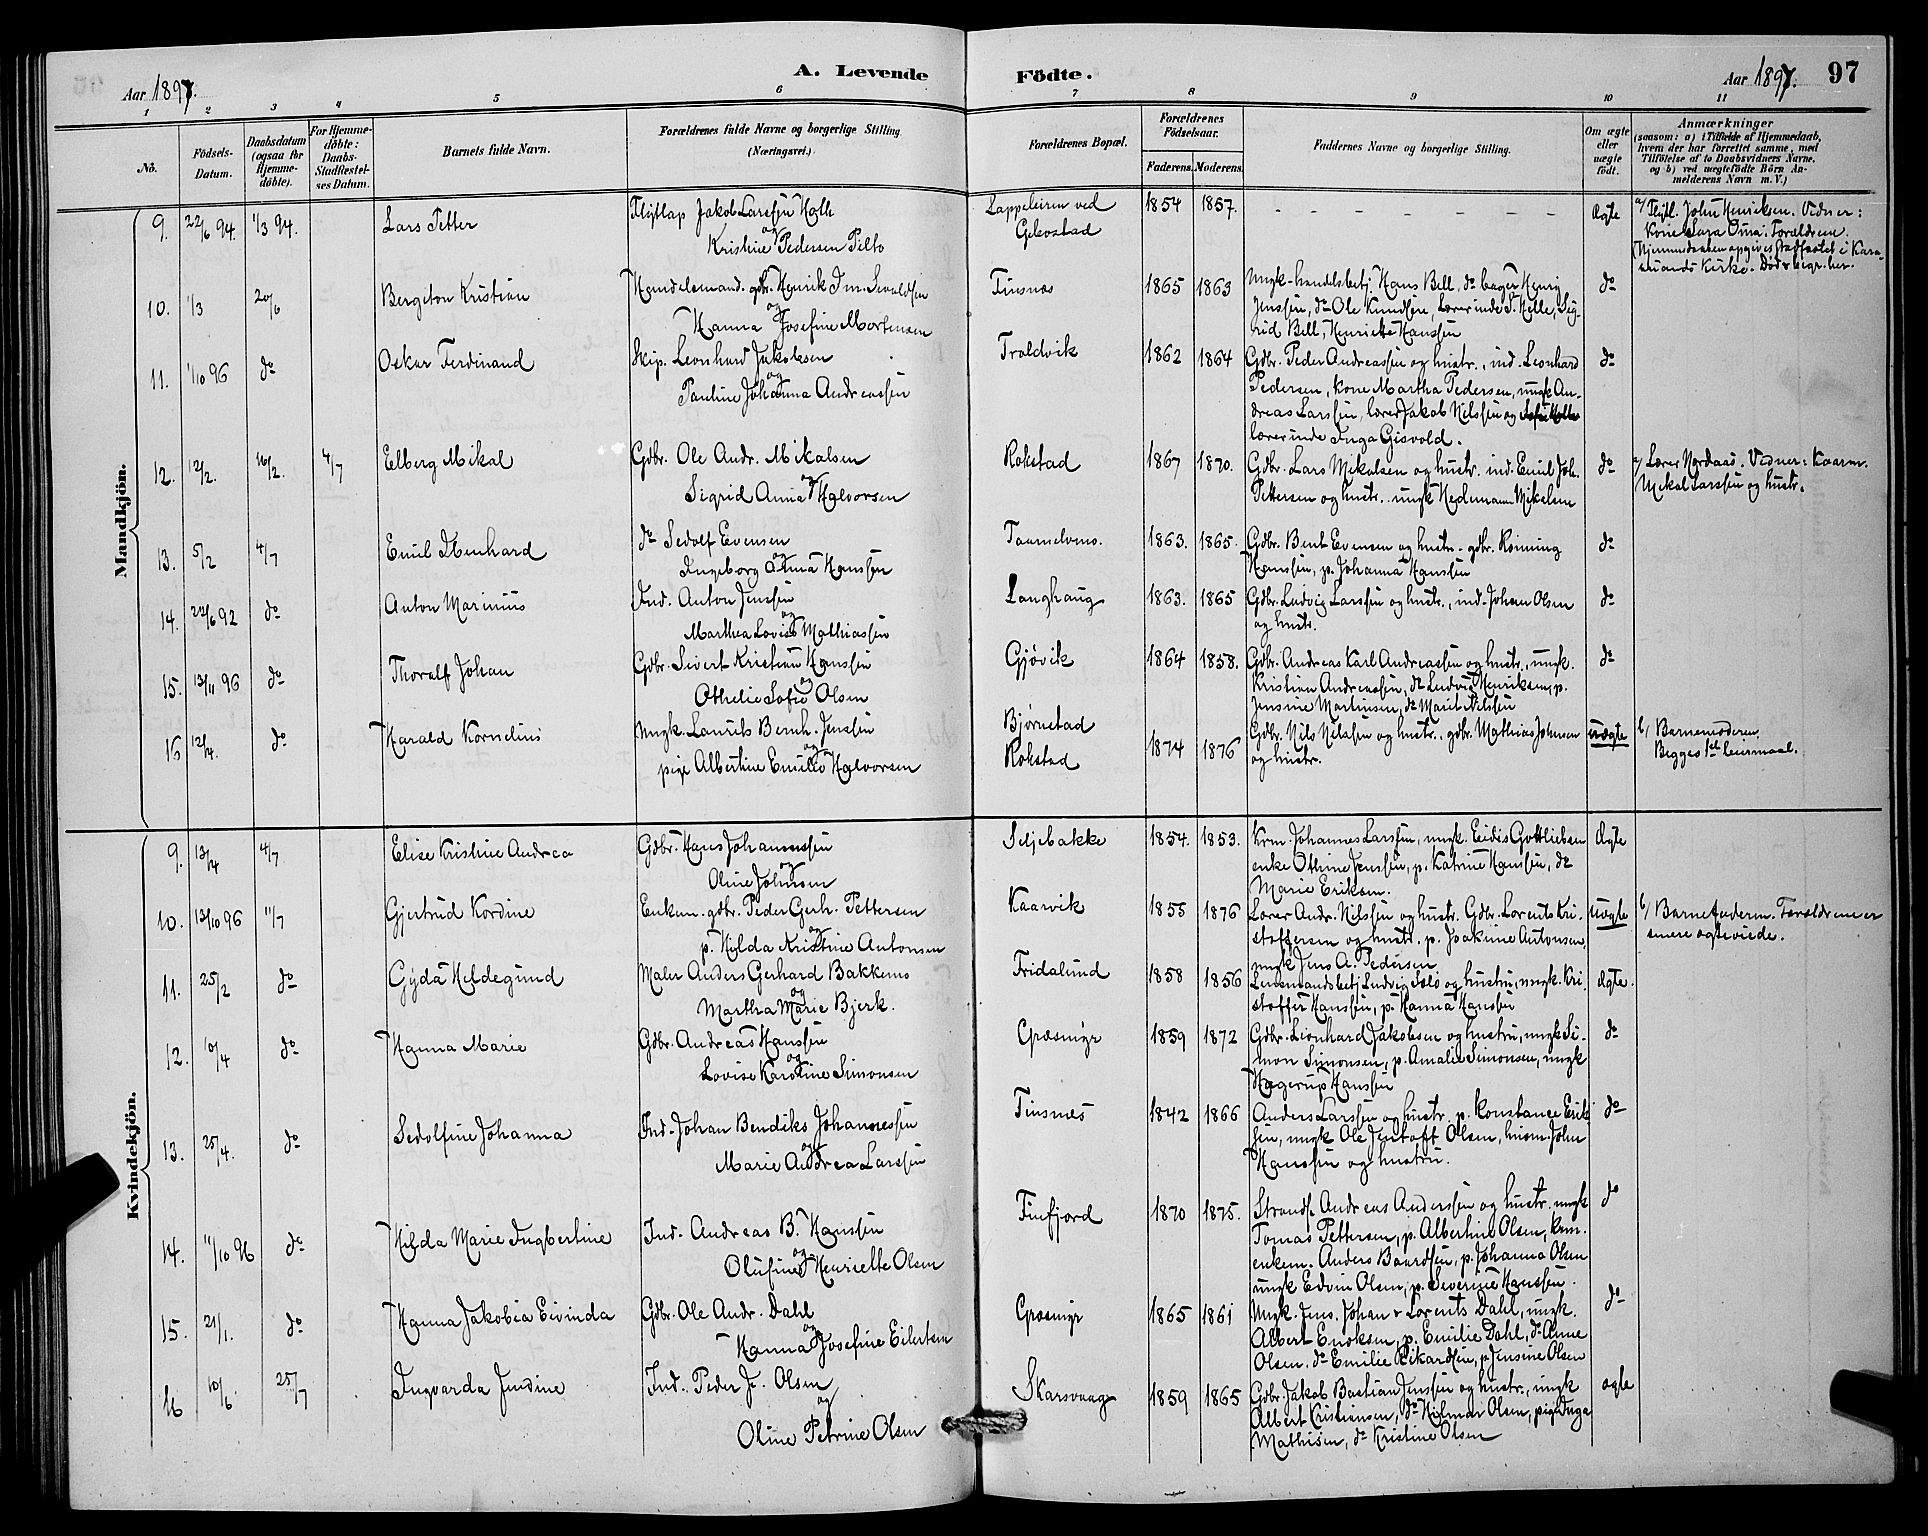 A. Levende Födte.
Aar 1897.
Aar 1897. 97
1 2 3 4 5 6 7 8 9 10 11
No.
Födsels-Datum.
Daabsdatum (ogsaa for Hjemmedöbte).
For Hjemmedöbte: Daabs-Stadfæstelses Datum.
Barnets fulde Navn.
Forældrenes fulde Navne og borgerlige Stilling (Næringsvei.)
Forældrenes Bopæl.
Forældrenes Födselsaar.
Faderens. Moderens.
Faddernes Navne og borgerlige Stilling.
Om ægte eller uægte födt.
Anmærkninger
(saasom: a) i Tilfælde af Hjemmedaab,
hvem der har forrettet samme, med
Tilföielse af to Daabsvidners Navne,
og b) ved uægtefödte Börn An-
melderens Navn m. V.)
Mandkjön.
9. 22/6 94. 1/3 94. Lars Petter
Flytlap Jakob Larssen
og
Kristine Pedersen Pilto
Lappeleiren ved
Gebostad
1854 1857. Ægte
a/ Flytl. John Henriksen. Vidner:
Kone Sara Oma. Forældrene.
10. 1/3 20/6 Bergiton Kristian
Handelsmand. gbr. Henrik Im. Sivaldsen
og
Hanna Josefine Mortensen
Finsnes
1865 1863
Ungk-handelsbetj. Hans Bell, do bager Henry
Jenssen, do Ole Knudsen, Lærerinde S. Helle, Sig-
rid Bell, Henriette Hanssen
do
11. 1/10 96 do Oskar Ferdinand
Skip. Leonhard Jakobsen
og
Pauline Johanna Andreassen
Troldvik
1862 1864
Gdbr. Peder Andreassen og hustr., ind. Leonhard
Pedersen, kone Martha Pedersen, ungk An-
dreas Larssen, lærer Jakob Nilssen og
lærerinde Inga Gisvold.
do
12. 12/2. 16/2. 4/7 Elberg Mikal
Gdbr. Ole Andr. Mikalsen
og
Sigrid Anna Halvorsen
Rokstad
1867 1870.
Gdbr. Lars Mikalsen og hustr. ind. Emil Joh.
Pettersen og hustr. ungk Hedemann Mikalsen
do
a/ Lærer Nordaas. Vidner: Kaarm.
Mikal Larssen og hustr.
13. 5/2 4/7 Emil
do Sedolf Evensen
og
Ingeborg Anna Hanssen
1863. 1865.
Gdbr. Bent Evensen og hustr. gdbr. Rönning
Hanssen, p. Johanna Hanssen
do
14. 24/6 92 do Anton Marinius
Ind. Anton Jenssen
og
Marthea Lovise Mathiassen
Langhaug
1863. 1865
Gdbr. Ludvig Larssen og hustr., ind. Johan Olsen
og hustr.
do
15. 13/11 96 do Thoralf Johan
Gdbr. Sivert Kristian Hanssen
og
Othelie Sofie Olsen
Gjøvik
1864 1858.
Gdbr. Andreas Karl Andreassen og hustr., ungk.
Kristian Andreassen, do Ludvig Henriksen, p.
Jensine Martinsen, do Marit Nilssen
do
16 12/4. do Harald Kornelius
Ungk. Laurits Bernh. Jenssen
og
pige Albertine Emilie Halvorsen
Bjørnstad
Rokstad
1874 1876
Gdbr. Nils Nilssen og hustr. gdbr. Mathias Johnsen
og hustr.
uægte
b/ Barnemoderen.
Begges 1ste Leiermaal.
Kvindekjön.
9. 13/4 4/7 Elise Kristine Andrea
Gdbr. Hans Johannessen
og
Oline Johnsen
Seljebakke
1854. 1853.
Krm. Johannes Larssen, ungk. Eidis Gottliebsen
enke Othine Jenssen, p. Katrine Hanssen, do
Marie Eriksen.
Ægte
10. 13/10 96 11/7 Gjertrud Kordine
Enkem. gdbr. Peder Gerh. Pettersen
og
p. Hilda Kristine Antonsen
Kaarvik
1855 1876
Lærer Andr. Nilssen og hustr. Gdbr. Lorents Kri-
stoffersen og hustr. p. Joakime Antonsen,
ungk Jens A. Pedersen
uægte
b/ Barnefaderen. Forældrene er
senere ægteviede.
11. 25/2 do Gyda Hildegund
Maler Anders Gerhard Bakkemo
og
Martha Marie Bjerk.
Fridalund
1858 1856
Lensmandsbetj. Ludvig og hustru, ungk. Kri-
stoffer Hanssen, p. Hanna Hanssen
Ægte.
12. 10/4 do Hanna Marie
Gdbr. Andreas Hanssen
og
Lovise Karoline Simonsen
Græsmyr
1859 1872
Gdbr. Leonhard Jakobsen og hustru, ungk Si-
mon Simonsen, p. Amalie Simonsen, ungk
Hagerup Hanssen
do
13. 25/4. do Sedolfine Johanna
Ind. Johan Bendiks Johannessen
og
Marie Andrea Larssen
Finsnes
1842 1866
Anders Larssen og hustr, p. Konstance Erik-
sen, ungk Ole Jentoft Olsen, husm. John
Hanssen og hustru.
do
14. 11/10 96 do Hilda Marie Ingbertine
Ind. Andreas B. Hanssen
og
Olufine Henriette Olsen
Finfjord
1870 1875.
Strands. Andreas Anderssen og hustr. ungk
Tomas Pettersen, p. Albertine Olsen, krm.
enkem. Anders Baardsen, p. Johanna Olsen
ungk Edvin Olsen, p. Severine Hanssen.
do
15. 21/1. do Hanna Jakobia Eivinda
Gdbr. Ole Andr. Dahl
og
Hanna Josefine Eilertsen
Græsmyr
1865 1861
Ungk. Jens. Johan & Lorents Dahl, ungk.
Albert Enoksen, p. Emilie Dahl, do Anne
Olsen, do Emilie Rikardsen, p. Jensine Olsen
do
16 10/6 25/7 Ingvarda Jendine
Ind. Peder J. Olsen
og
Oline Petrine Olsen
Skarsvaag
1859 1865
Gdbr. Jakob Bastian Jenssen og hustr., ungk
Albert Kristiansen, do Hilmar Olsen, pige Inga
Mathisen, do Kristine Olsen
ægte